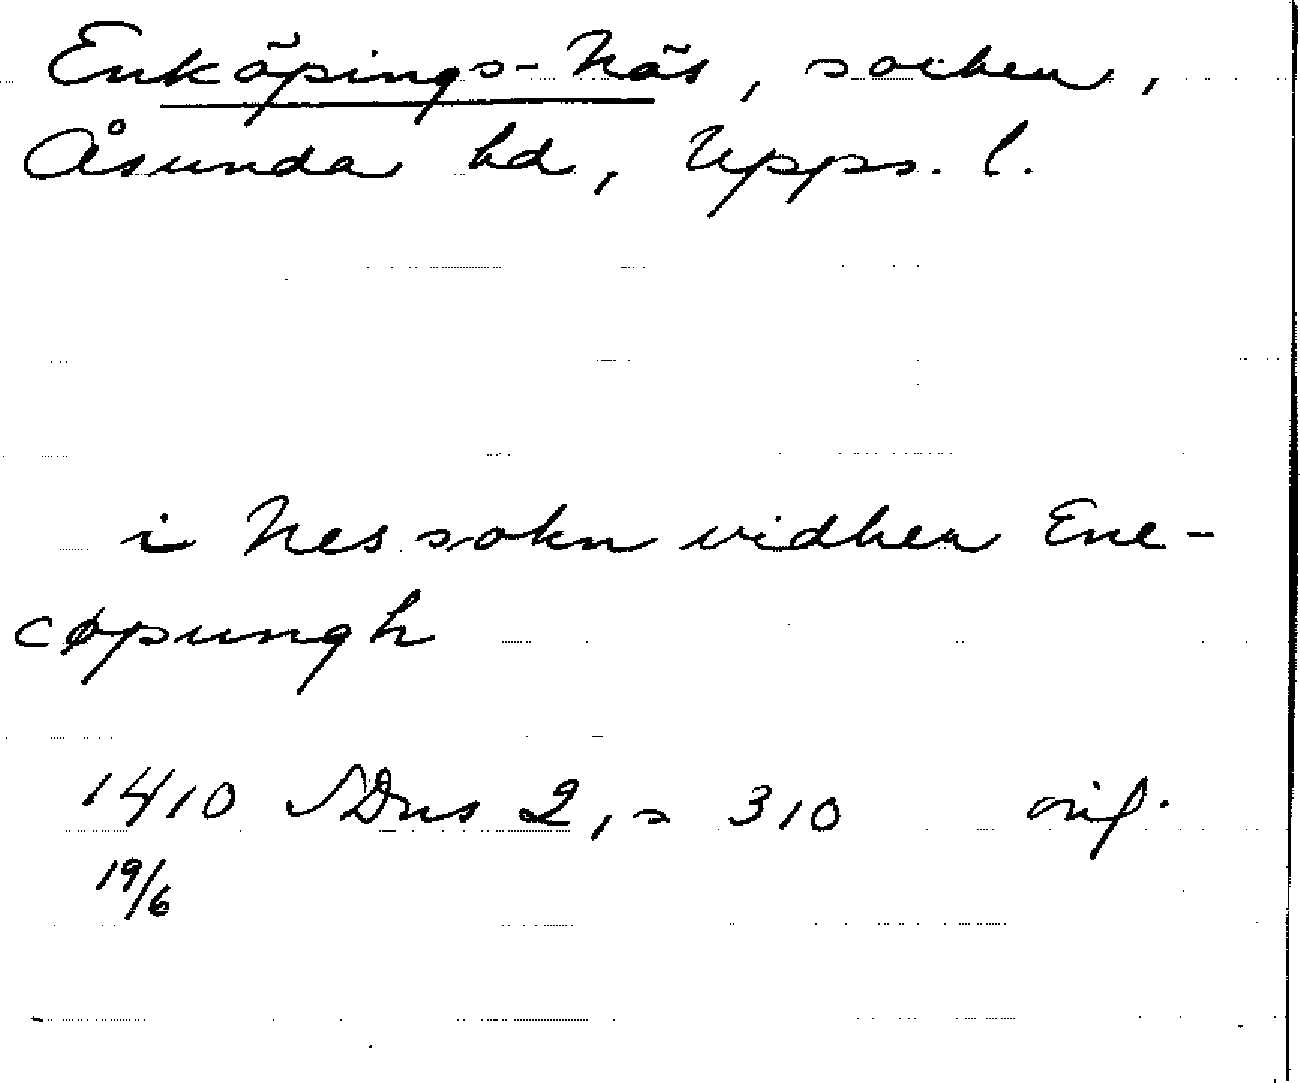 Enköpings-Näs, socken,
Åsunda hd, Upps. l.
i Nes sokn vidher Ene-
cøpungh
1410 SDns 2, s 310 orig.
19/6